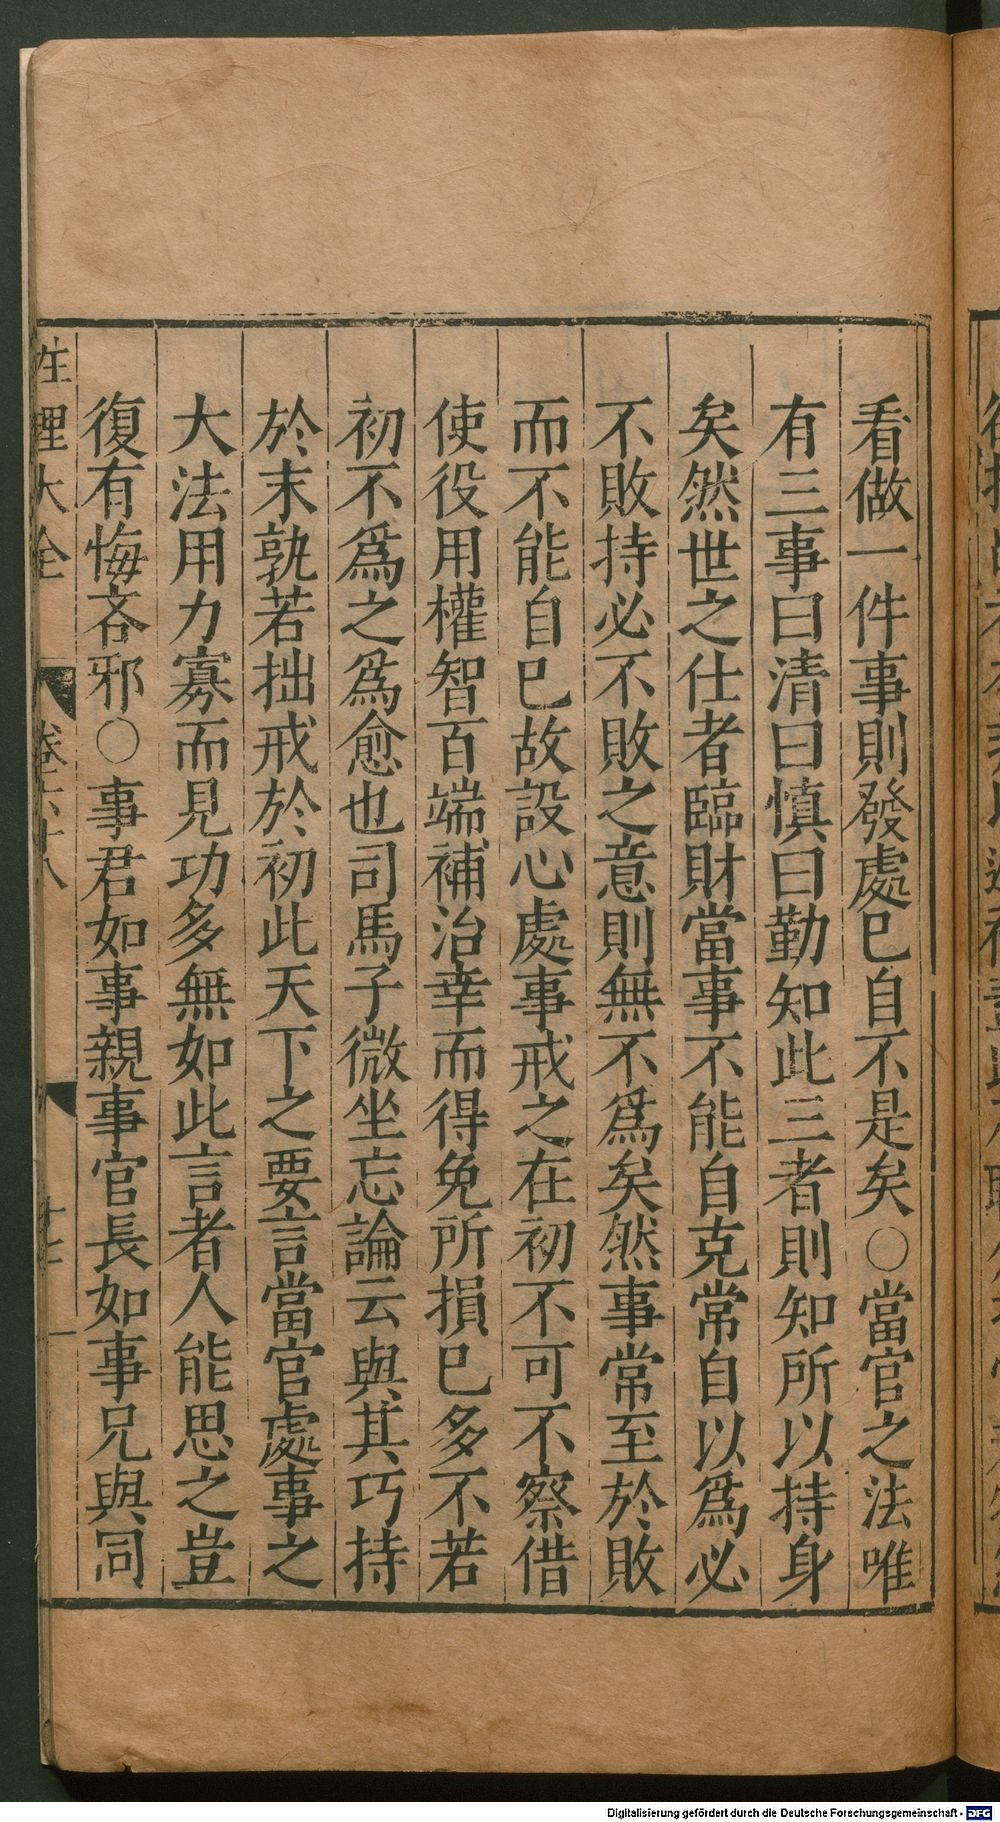 看做一件事則發處已自不是矣○當官之法唯
有三事曰清曰慎曰勤知此三者則知所以持身
矣然世之仕者臨財當事不能自克常自以為必
不敗持必不敗之意則無不為矣然事常至於敗
而不能自已故設心處事戒之在初不可不察借
使役用權智百端補治幸而得免所損已多不若
初不為之為愈也司馬子微坐忘論云與其巧持
於末孰若拙戒於初此天下之要言當官處事之
大法用力寡而見功多無如此言者人能思之豈
復有悔吝邪○事君如事親事官長如事兄與同
性理大全 卷六十八 十七
Digitalisierung gefördert durch die Deutsche Forschungsgemeinschaft - DFG